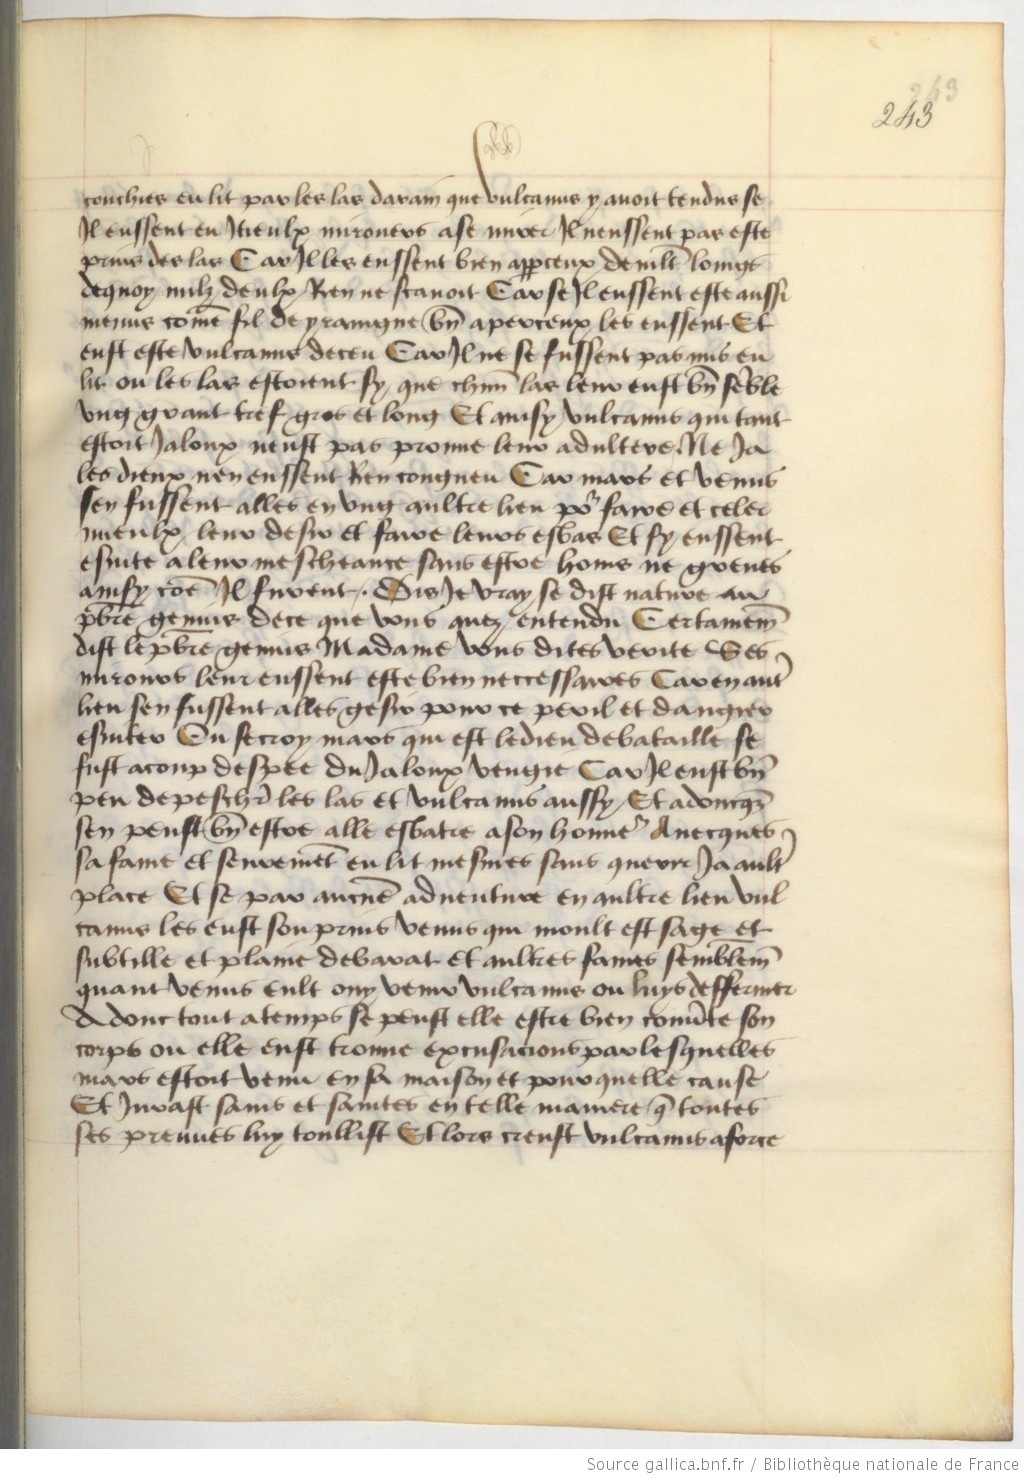 263
243
couchies eu lit par les las darain que vulcanus y auoit tendus se
Il eussent eu Itieulx mirouers a se mirer Il neussent pas este
prins des las Car Il les eussent bien apperceux de mlt loings
dequoy nulz deulx Rien ne scauoit Car se Il eussent este aussi
menus come fil de yraingne bn aperceux les eussent Et
eust este vulcanus deceu Car Il ne se fussent pas mis eu
lit ou les las estoient sy que chun las leur eust bn seble
vng grant tref gros et long Et ainsy vulcanus qui tant
estoit Jaloux neust pas prouue leur adultere Ne Ja
les dieux nen eussent Rien congneu Car mars et venus
sen fussent alles en vng aultre lieu por faire et celer
mieulx leur desir et faire leurs esbas Et sy eussent
esuite a leur mescheance sans estre honis ne greues
ainsy coe Il furent. Dis Je vray se dist nature au
pbre genius de ce que vous auez entendu Certainem
dist le pbre genius Madame vous dites verite Ses
mirours leur eussent este bien neccessaires Car en ault
lieu sen fussent alles gesir pour ce peril et dangier
esuiter Ou se croy mars qui est le dieu de bataille se
fust a coup despee du Jaloux vengie Car Il eust bn
peu depescher les las et vulcanus aussy Et adoncqs
sen peust bn estre alle esbatre a son honner Auecques
sa fame et seuremet eu lit mesmes sans querir Ja ault
place Et se par aucue aduenture en aultre lieu vul
canus les eust sourprins venus qui moult est sage et
subtille et plaine de barat Et aultres fames semblem
quant venus eult ouy venir vulcanus ou luys deffermer
Adonc tout a temps se peust elle estre bien couute son
corps ou elle eust trouue excusacions par lesquelles
mars estoit venu en sa maison et pour quelle cause
Et Jurast sains et saintes en telle maniere q toutes
ses preuues luy toullist Et lors creust vulcanus a force
Source gallica.bnf.fr / Bibliothèque nationale de France